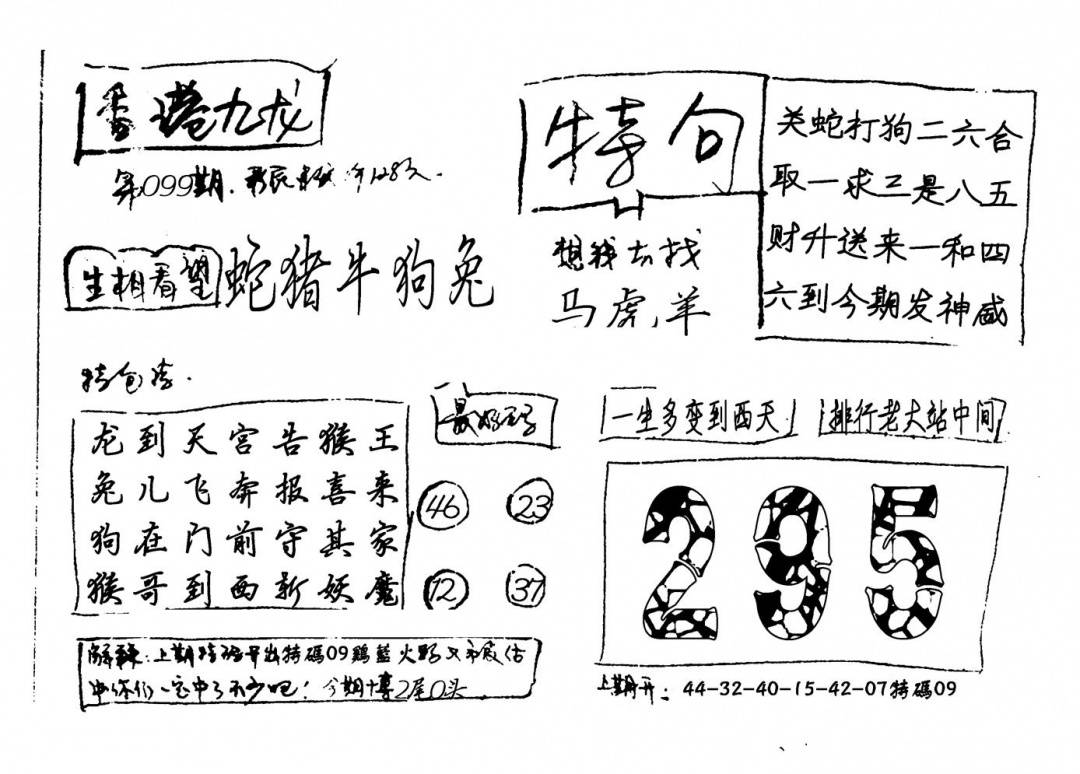 香港九龙
第099期.
生相看望 蛇猪牛狗兔
特句
想钱去找
马虎.羊
关蛇打狗二六合
取一求三是八五
财升送来一和四
六到今期发神威
特包诗.
龙到天宫告猴王
兔儿飞奔报喜来
狗在门前守其家
猴哥到西斩妖魔
最好码
46 23
12 37
一生多变到西天
排行老大站中间
295
解释:上期特码开出特碼09鷄蓝火野又
中你们一定中了不少吧!今期博2尾0头
上期开: 44-32-40-15-42-07特碼09